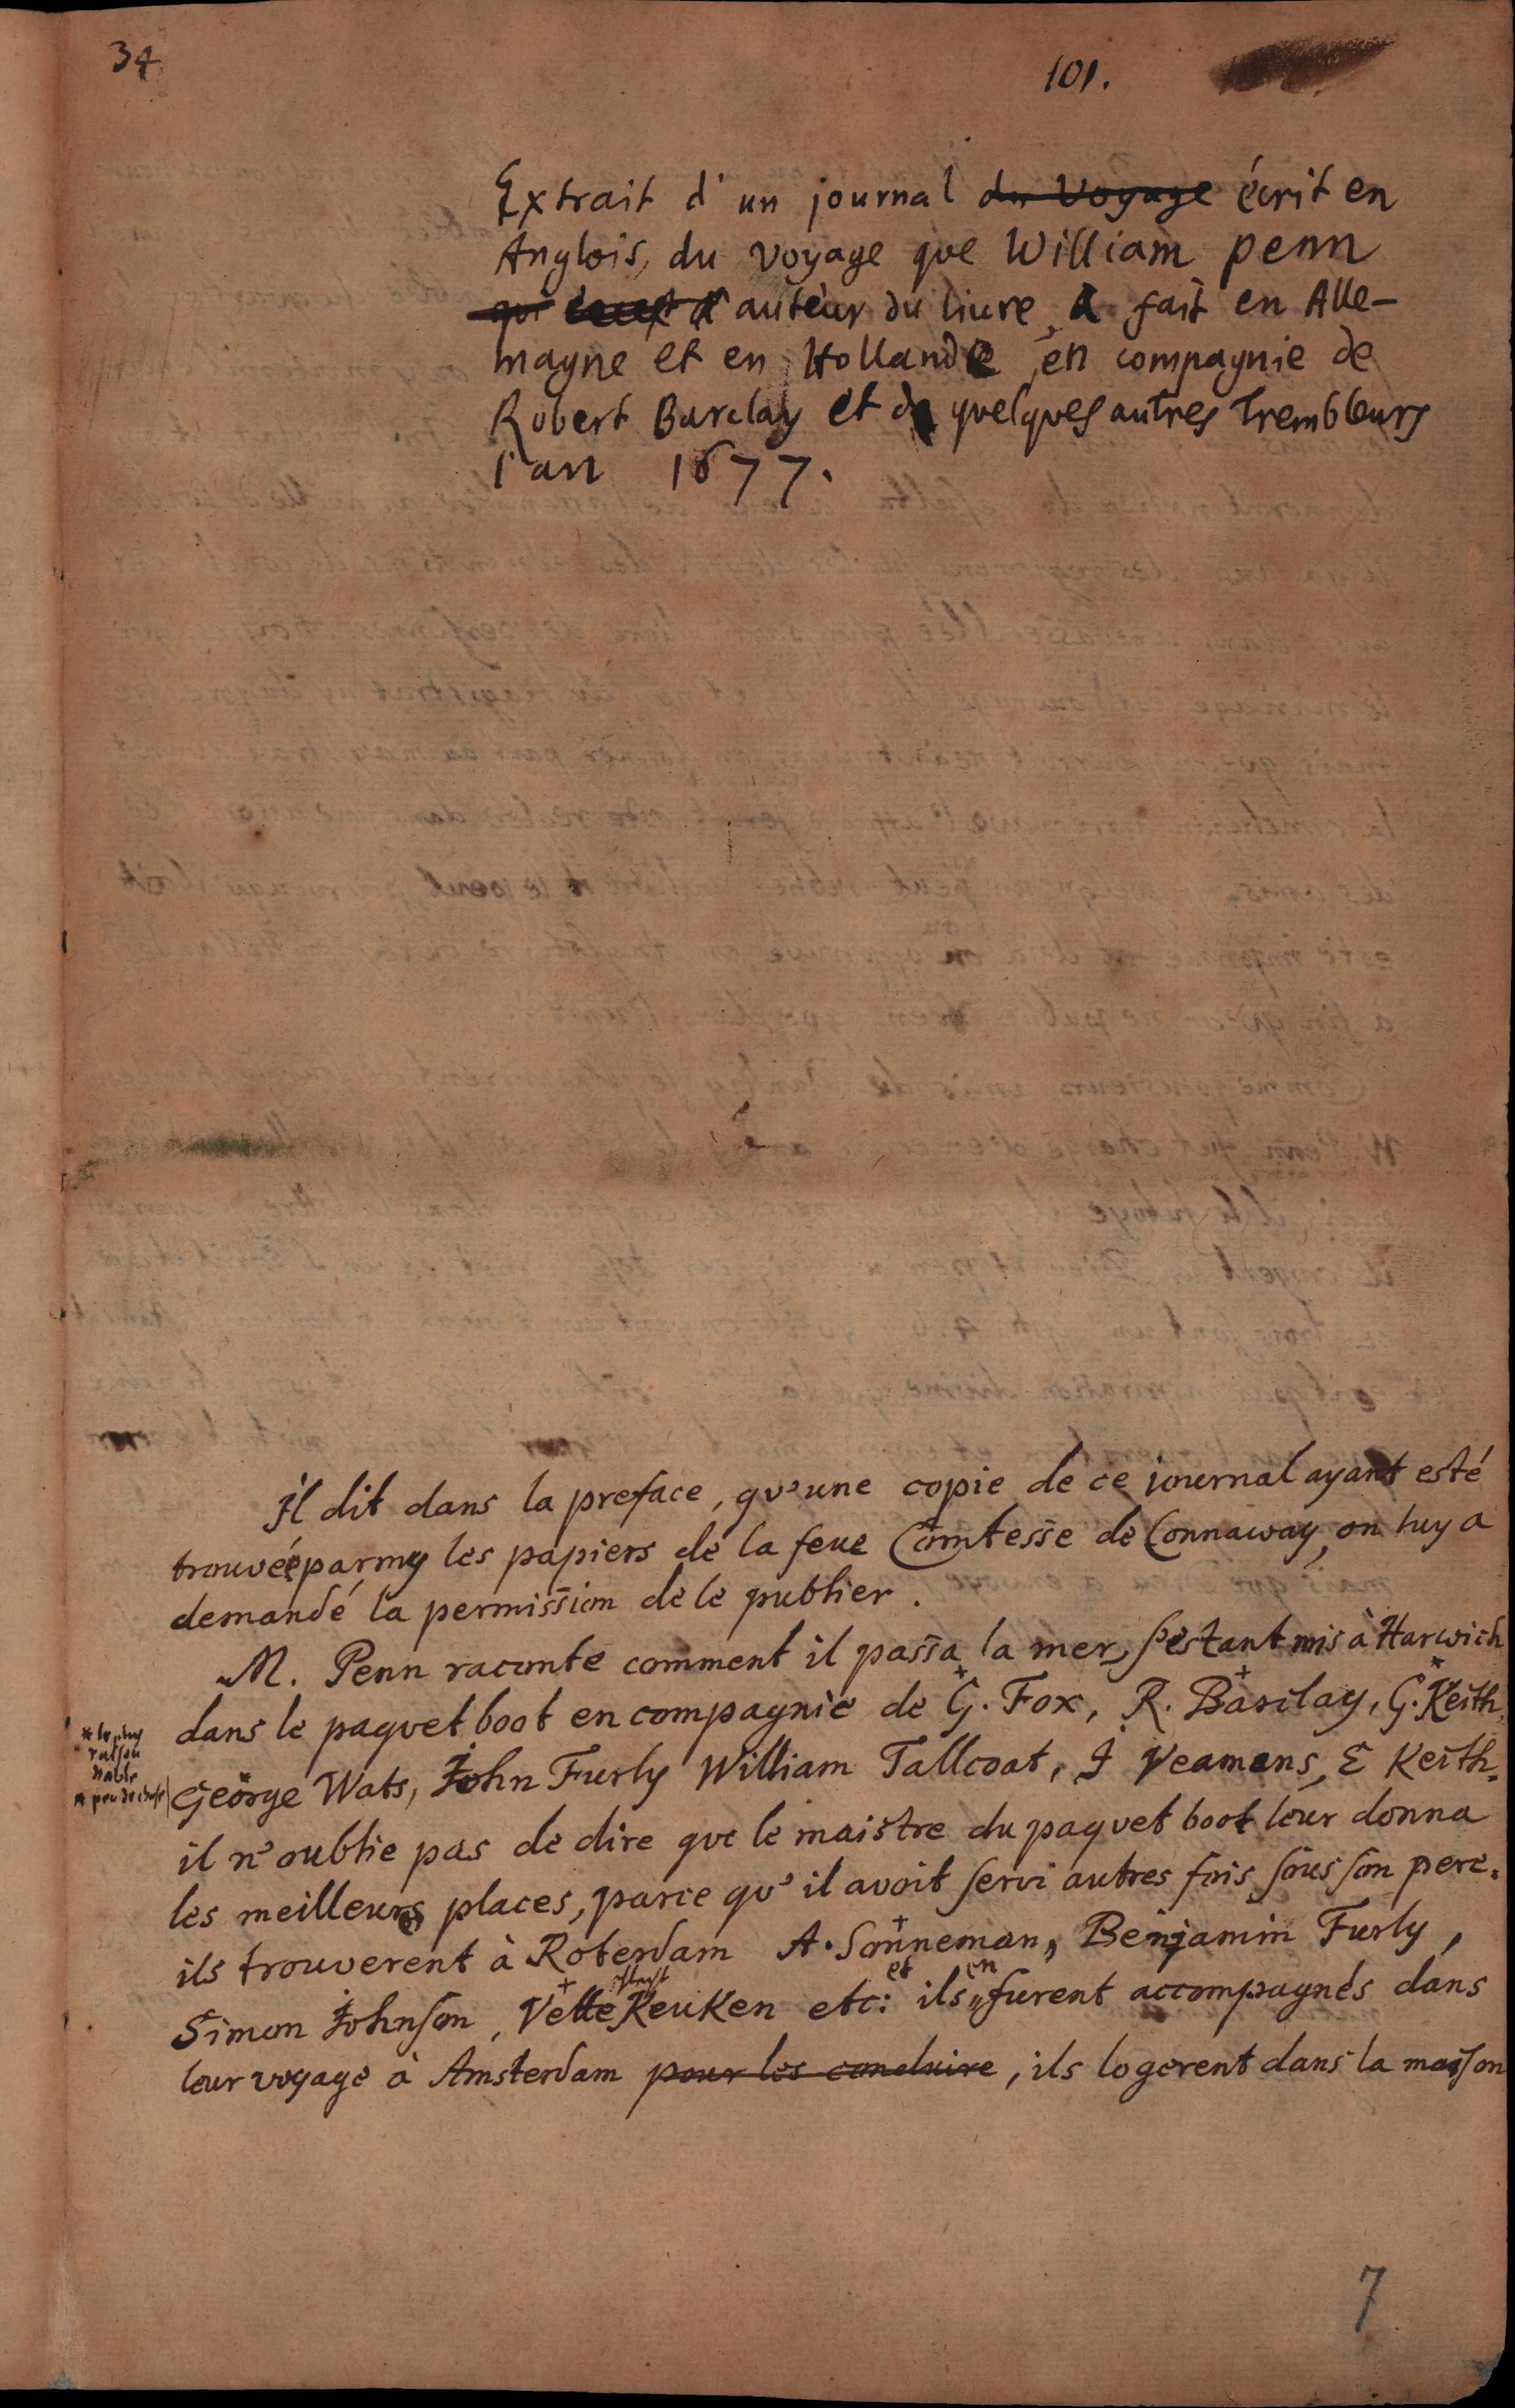 34
101.
Extrait d'un journal du Voyage écrit en
Anglois, du voyage que William penn
qui auteur du liure, a fait en Alle-
magne et en Hollande, en compagnie de
Robert Barclay et de quelques autres Trembleurs
l'an 1677.
Il dit dans la preface, qu'une copie de ce journal ayant esté
trouvée parmy les papiers de la feue Comtesse de Connaway, on luy a
demandé la permission de le publier.
M. Penn raconte comment il passa la mer, s'estant mis à Harwich
dans le paquet boot en compagnie de G. Fox, R. Barclay, G. Keith,
* le plus
raison
nable
* peu de chose
George Wats, John Furly William Tallcoat, J Yeamans, E Keith.
il n'oublie pas de dire que le maistre du paquet boot leur donna
les meilleures places, parce qu'il avoit servi autres fois sous son pere.
ils trouverent à Roterdam A. Sonneman, Benjamin Furly,
et en
Simon Johnson, Vette Keuken etc: ils furent accompagnés dans
leur voyage à Amsterdam pour les conduire, ils logerent dans la maison
7